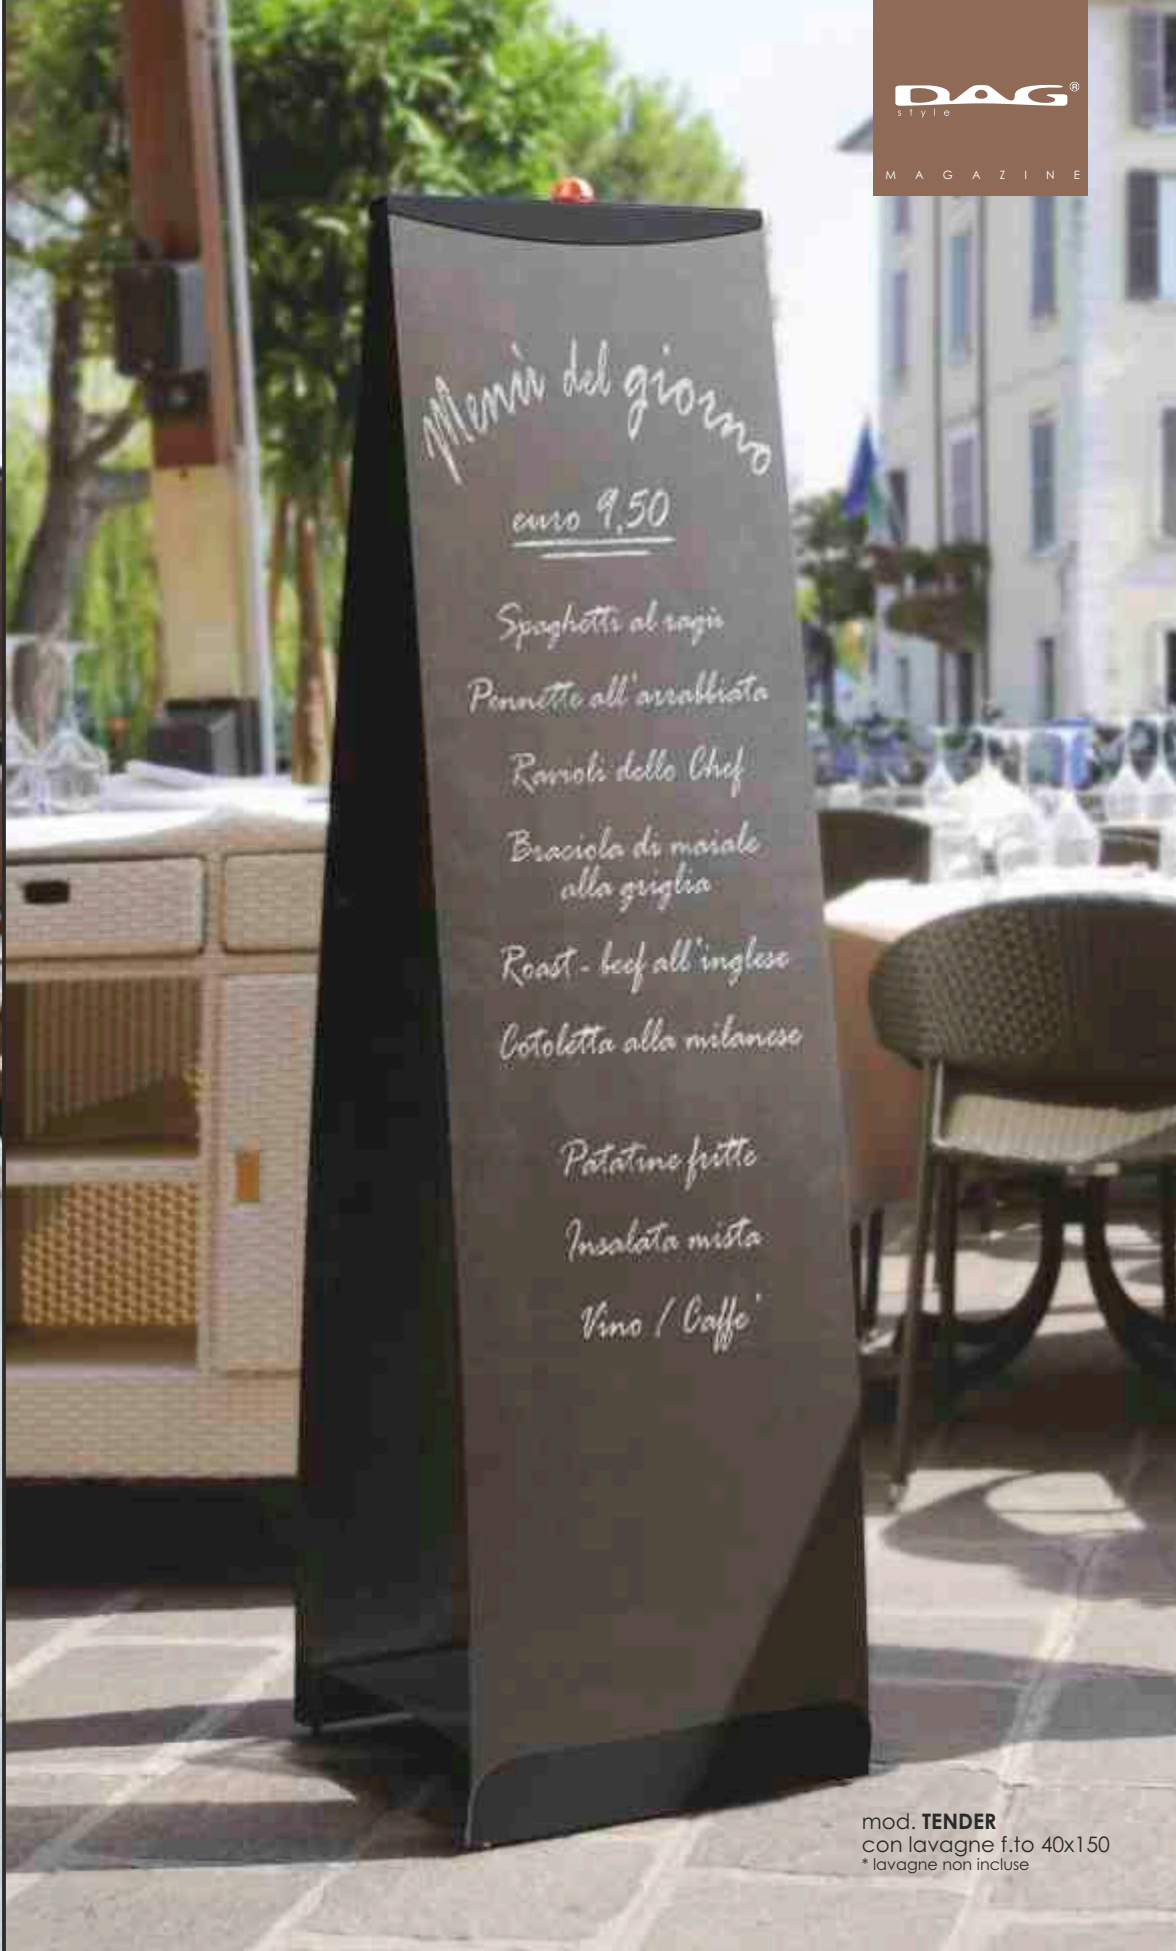 DAG®
style
MAGAZINE
Menù del giorno
euro 9,50
Spaghetti al ragù
Pennette all'arrabbiata
Ravioli dello Chef
Braciola di maiale
alla griglia
Roast - beef all'inglese
Cotoletta alla milanese
Patatine fritte
Insalata mista
Vino / Caffe'
mod. TENDER
con lavagne f.to 40x150
* lavagne non incluse